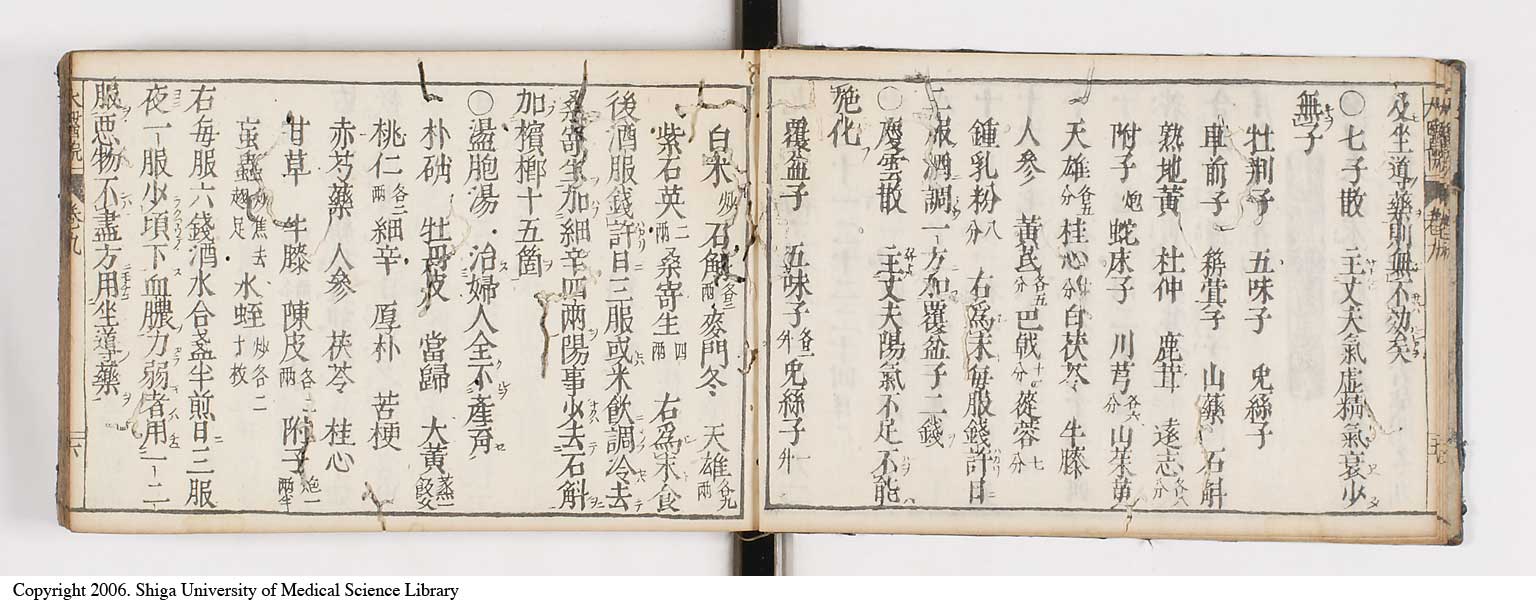 及坐導藥則無不効矣
〇七子散 主丈夫氣虛精氣衰少
無子
牡荆子 五味子 兎絲子
車前子 菥蓂子 山藥 石斛
熟地黄 杜仲 鹿茸 遠志各八分
附子炮 蛇床子 川芎各六分 山茱萸
天雄各五分 桂心 白茯苓 牛膝
人參八分 黃芪各五分 巴戟十分 蓯蓉七分
鍾乳粉八分 右爲末每服錢許日
二服酒調一方加覆盆子二錢
〇慶雲散 主丈夫陽氣不足不能
施化
覆盆子 五味子各二升 兎絲子一升
白朮炒 石斛各三兩 麥門冬 天雄各九兩
紫石英二兩 桑寄生四兩 右爲末食
後酒服錢許日三服或米飲調冷去
桑寄生加細辛四兩陽事少去石斛
加檳榔十五箇
〇盪胞湯 治婦人全不產育
朴硝 牡丹皮 當歸 大黃蒸一飯久
桃仁各二兩 細辛 厚朴 苦梗
赤芍藥 人參 茯苓 桂心
甘草 牛膝 陳皮各二兩 附子炮一兩半
䖟蟲炒焦去翅足 水蛭炒各二十枚
右每服六錢酒水合盞半煎日三服
夜一服少頃下血膿力弱者用一二
服惡物不盡方用坐導藥
卷九
六